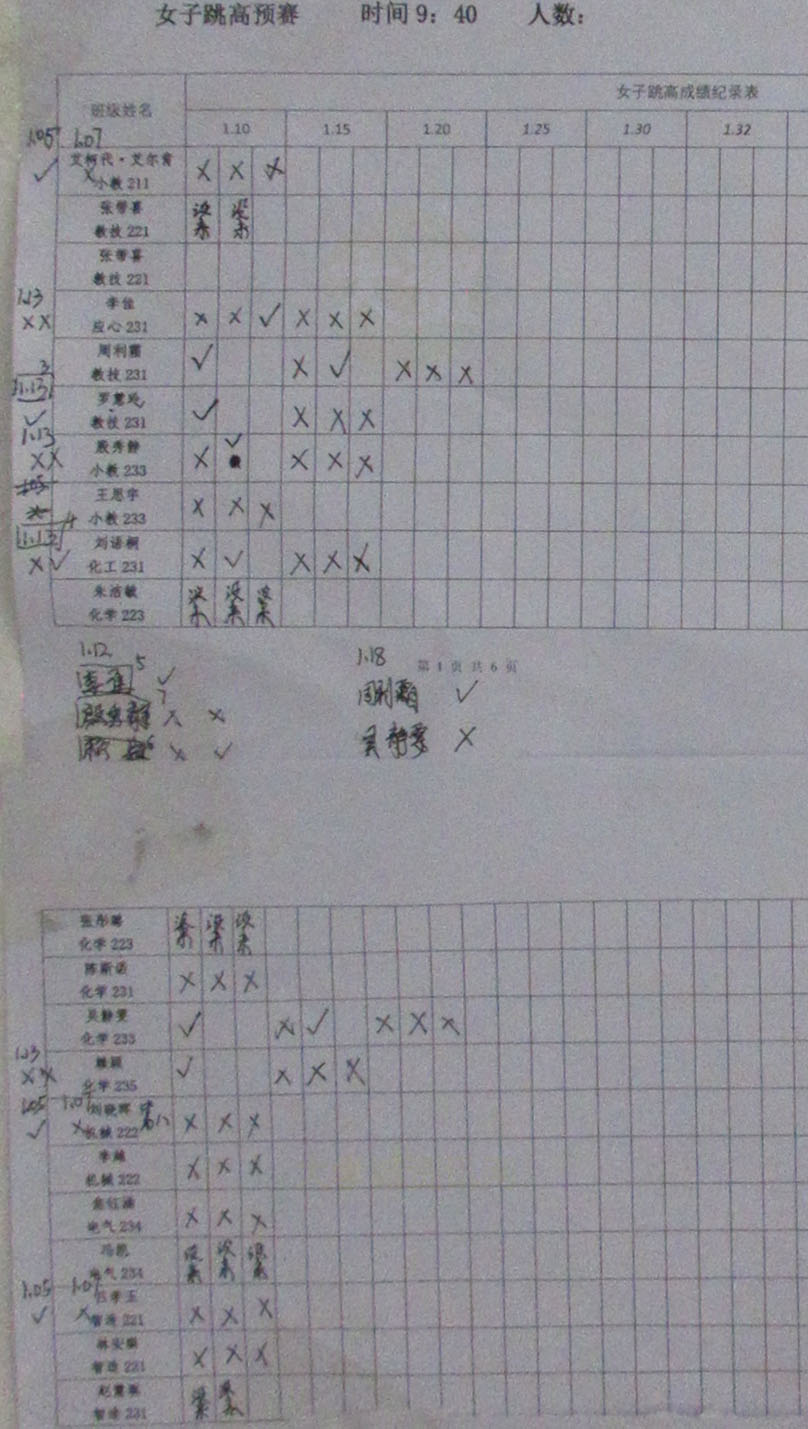 女子跳高预赛 时间9：40 人数：
女子跳高成绩纪录表
班级姓名 1.10 1.15 1.20 1.25 1.30 1.32
1.05 1.07
艾柯代·艾尔肯
✓ × 小教 211 × × ×
张带喜 没来 没来
教技 221
张带喜
教技 221
1.13 李佳
×× 应心 231 × × ✓ × × ×
周利霜
教技 231 ✓ × ✓ × × ×
3
1.13 罗慧
✓ 教技 231 ✓ × × ×
1.13 殷秀静 ✓
×× 小教 233 × × × ×
1.05 王思宇
× 小教 233 × × ×
4
1.13 刘语桐
×✓ 化工 231 × ✓ × × ×
朱洁敏 没来 没来 没来
化学 223
1.12 1.18
第 1 页 共 6 页
5 ✓ 周利霜 ✓
7 × × 吴静雯 ×
6 × ✓
没来 没来 没来
化学 223
陈斯诺
化学 231 × × ×
吴静雯
化学 233 ✓ × ✓ × × ×
1.13
×× 化学 235 ✓ × × ×
1.05 1.07 刘晓晖
✓ × 机械 222 × × ×
李
机械 222 × × ×
电气 234 × × ×
冯凯 没来 没来 没来
电气 234
1.05 1.07
✓ × 智造 221 × × ×
林安
智造 221 × × ×
赵 没来 没来
智造 231